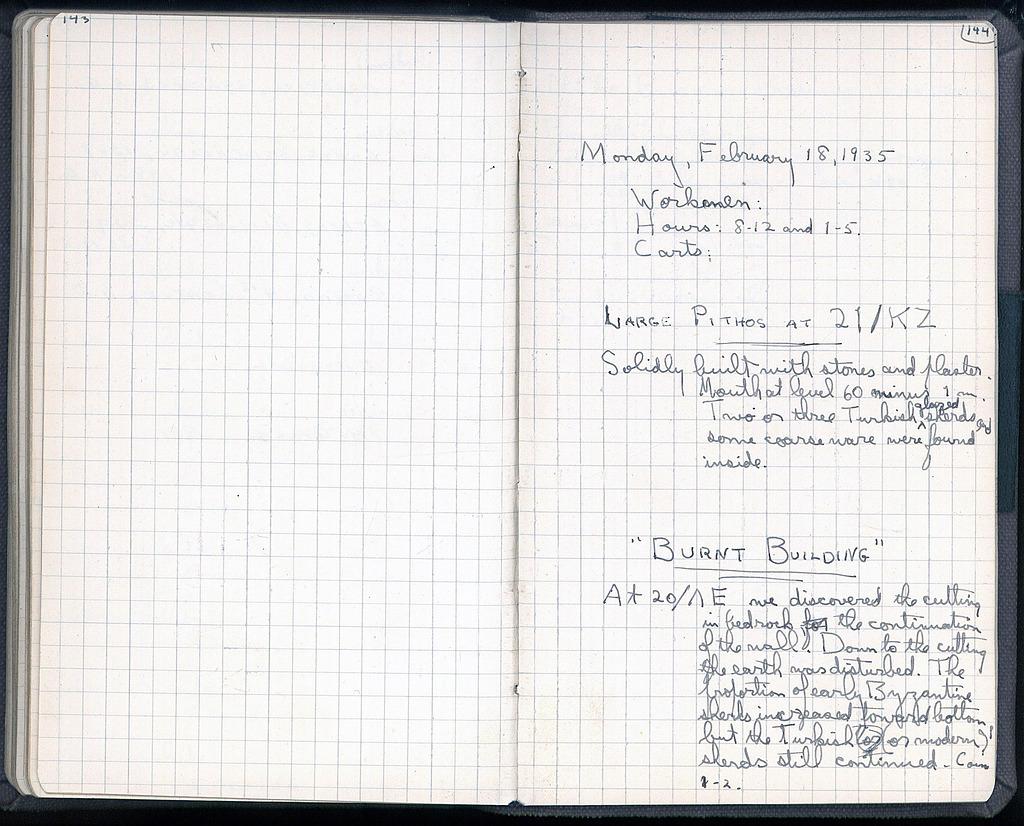 143
144
Monday, February 18, 1935
Workmen:
Hours: 8-12 and 1-5.
Carts:
LARGE PITHOS AT 21/KZ
Solidly built with stones and plaster.
Mouth at level 60 minus 1 m.
Two or three Turkish glazed sherds and
some coarse ware were found
inside.
"BURNT BUILDING"
At 20/ΛE we discovered the cutting
in bedrock for the continuation
of the wall. Down to the cutting
the earth was disturbed. The
proportion of early Byzantine
sherds increased toward bottom,
but the Turkish (or modern)
sherds still continued. Coin
1-2.